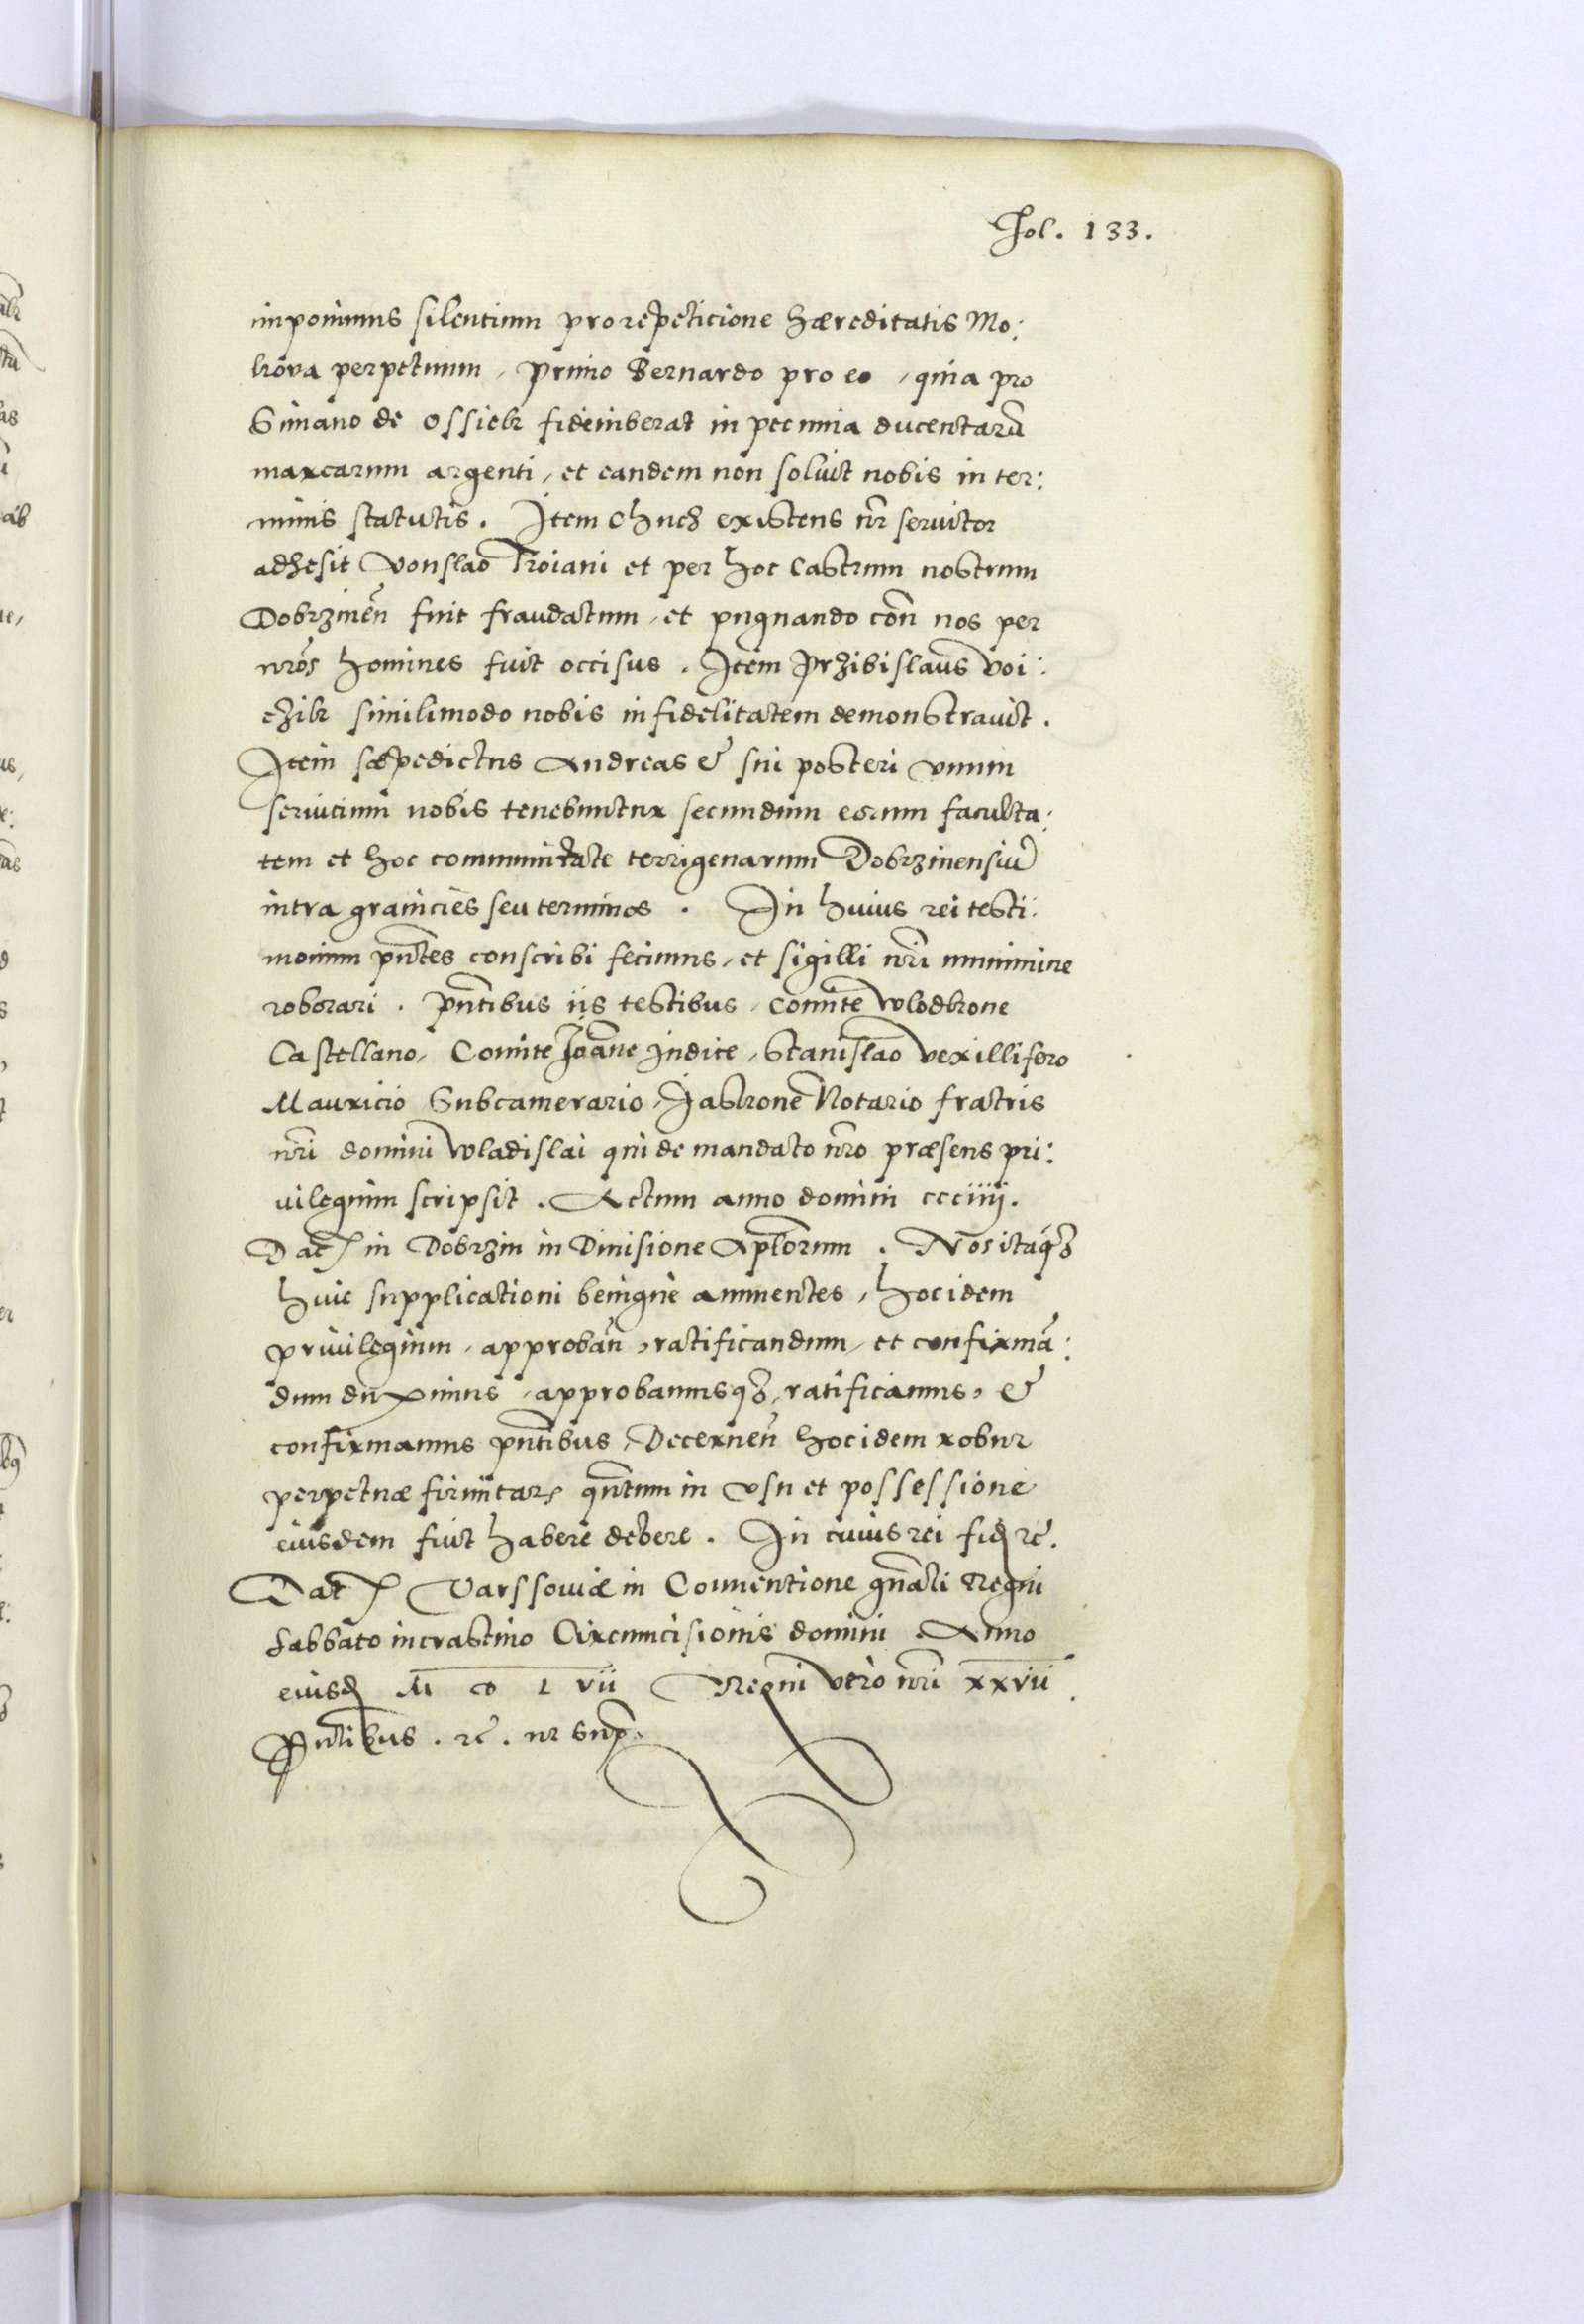 Fol. 133.
imponimus silentium pro repeticione hæreditatis Mo:
krova perpetuum, primo Bernardo pro eo, quia pro
Simano de Ossiek fideiuberat in pecunia ducentarū
marcarum argenti, et eandem non soluit nobis in ter:
minis statutis. Item Chnez existens nr̄ seruitor
adhesit Vonslao Troiani et per hoc Castrum nostrum
Dobrzineñ fuit fraudatum, et pugnando coñ nos per
nr̄os homines fuit occisus. Item Przibislaus Voi:
czik simili modo nobis infidelitatem demonstrauit.
Item sæpedictus Andreas & sui posteri vnum
seruicium nobis tenebuntur secundum eorum faculta:
tem et hoc communitate terrigenarum Dobrzinensiū
intra granicies seu terminos. In huius rei testi:
monium pn̄tes conscribi fecimus, et sigilli nr̄i munimine
roborari. Pn̄tibus iis testibus, Comite Wlodkone
Castellano, Comite Joāne Judice, Stanislao vexillifero
Mauricio Subcamerario, Jaskone Notario fratris
nr̄i domini Wladislai qui de mandato nr̄o præsens pri:
uilegium scripsit. Actum anno domini ccciiij.
Dat in Dobrzin in Diuisione Apl̄orum. Nos itaq3
huic supplicationi benigne annuentes, hoc idem
priuilegium, approbañ, ratificandum, et confirmā:
dum duximus, approbamusq3, ratificamus, &
confirmamus pn̄tibus, Decerneñ hoc idem robur
perpetuæ firmitatꝭ qn̄tum in vsu et possessione
eiusdem fuit habere debere. In cuius rei fid rc̄.
Dat Varssouiæ in Conuentione gn̄ali Regni
Sabbato in crastino Circumcisionis domini Anno
eiusd M D L vii Regni vero nr̄i xxvii
Pn̄tibus. rc̄. vt sup.